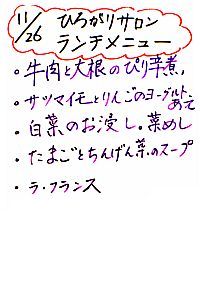 11/26 ひろがりサロン
ランチメニュー
・牛肉と大根のぴり辛煮
・サツマイモとりんごのヨーグルトあえ
・白菜のお浸し・菜めし
・たまごとちんげん菜のスープ
・ラ・フランス